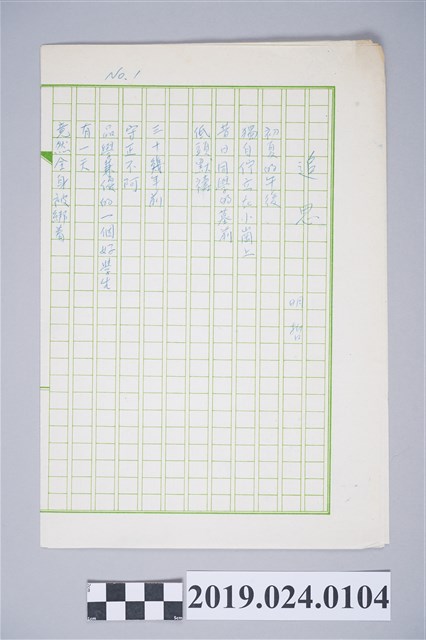 No. 1
追思
明哲
初夏的午後
獨自佇立在小崗上
昔日同學的墓前
低頭默禱
三十幾年前
守正不阿
品學兼優的一個好學生
有一天
竟然全身被綁着
2019.024.0104